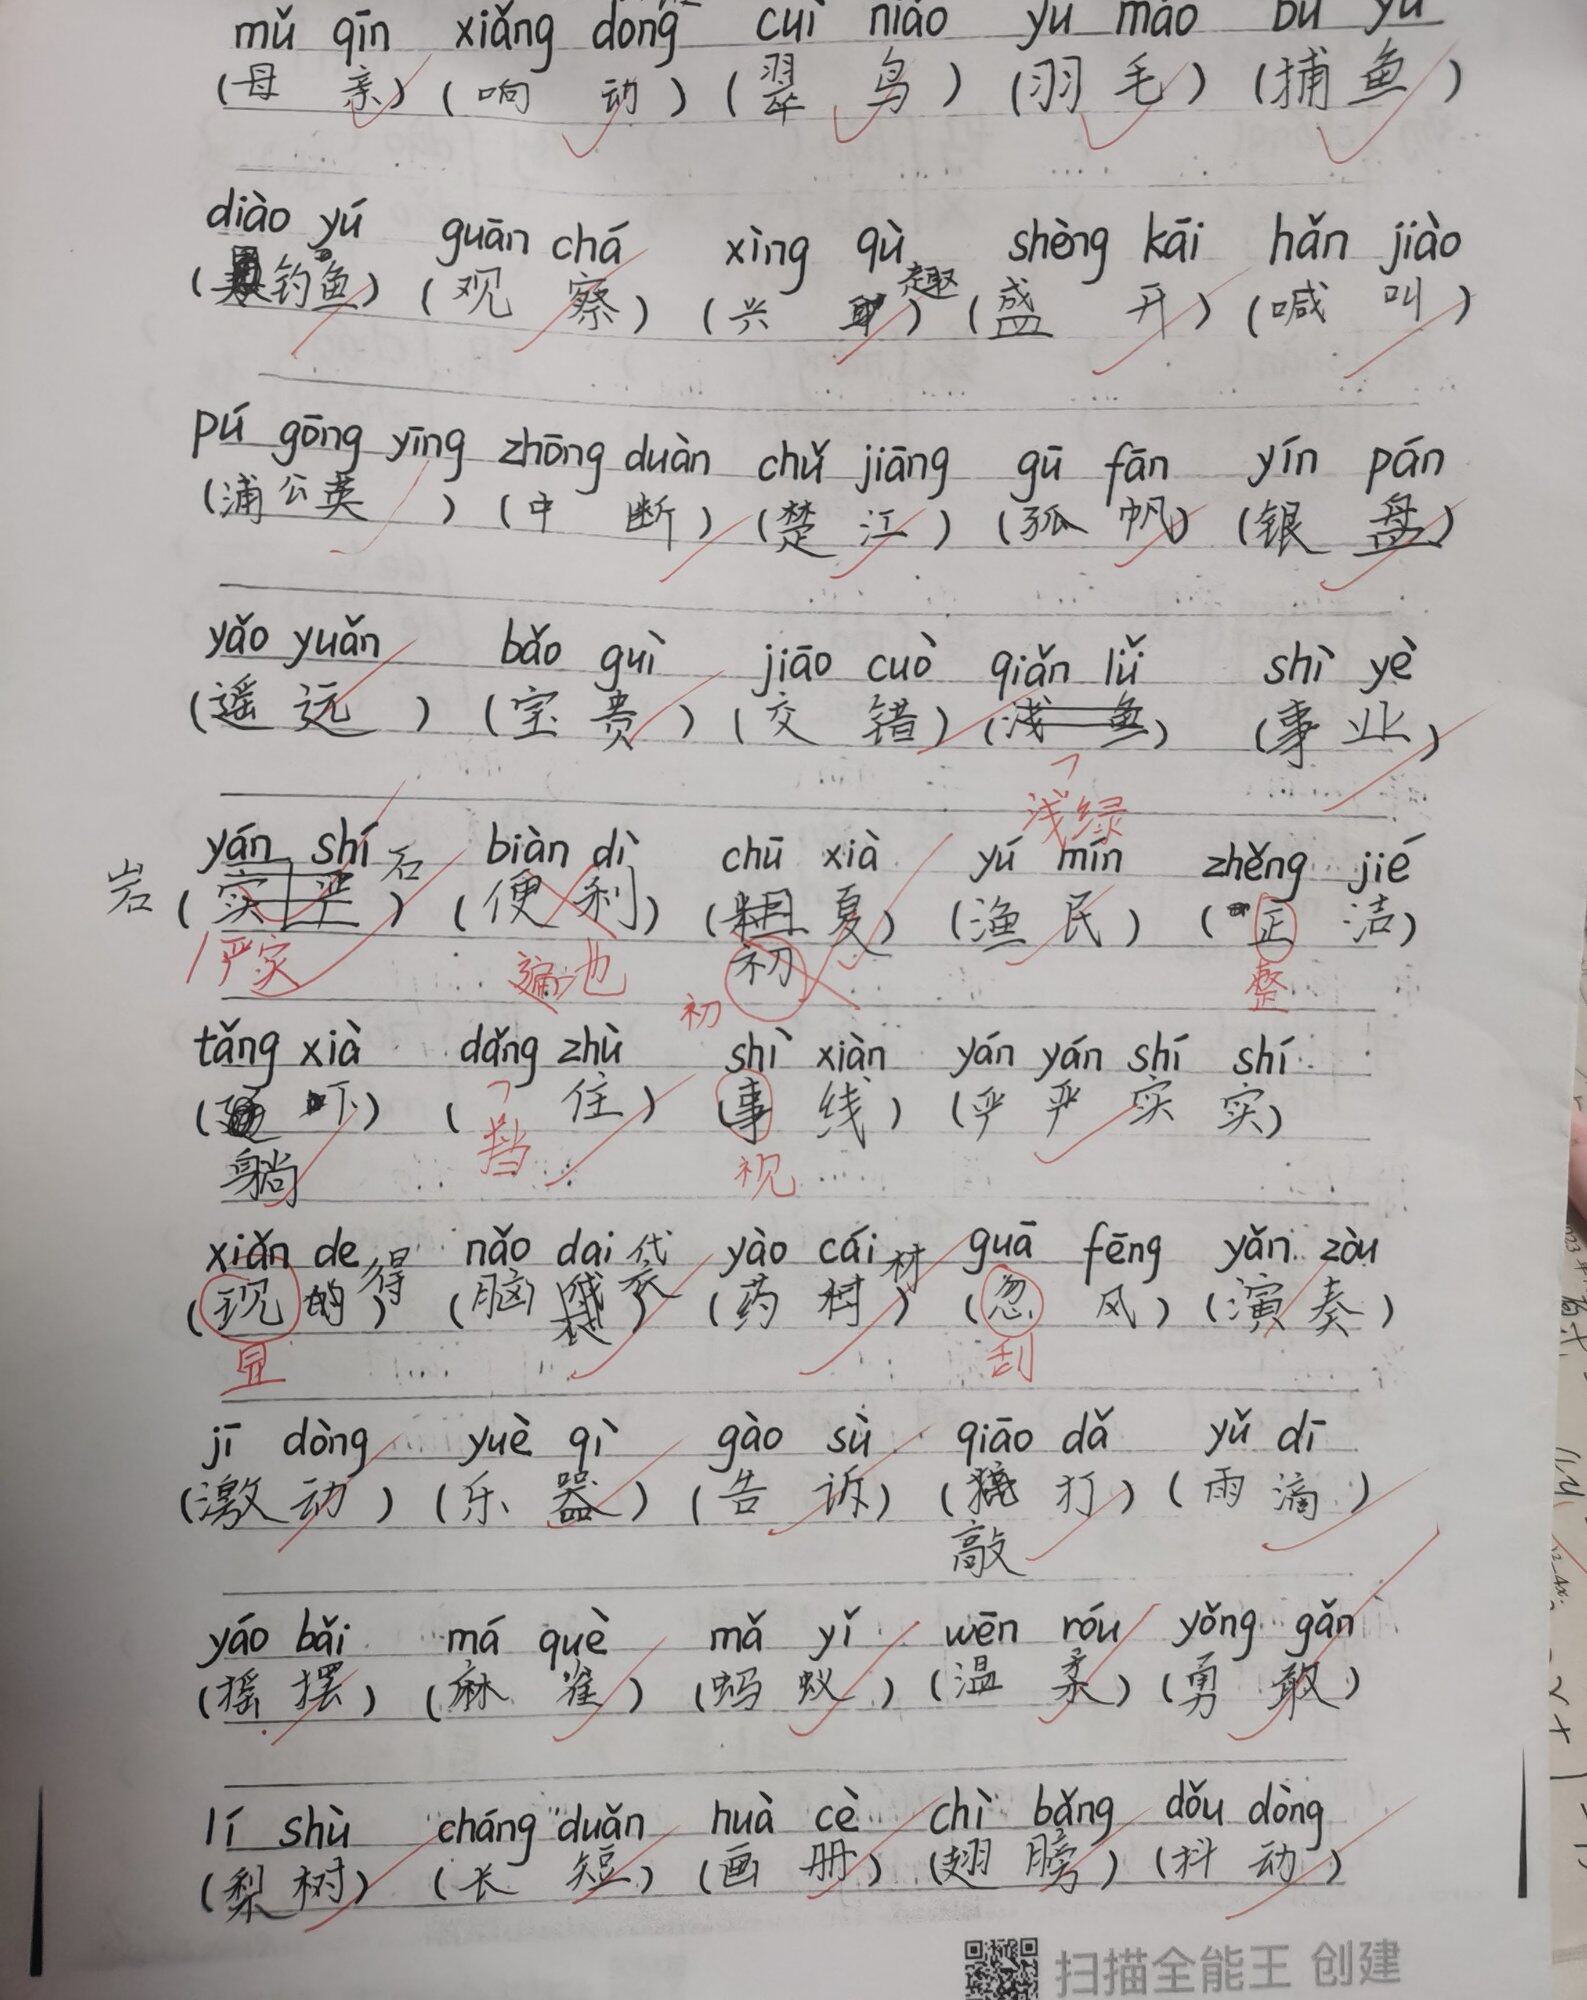 mǔ qīn xiǎng dòng cuì niǎo yǔ máo bǔ yú
(母 亲) (响 动) (翠 鸟) (羽 毛) (捕 鱼)
diào yú guān chá xìng qù shèng kāi hǎn jiào
(钓鱼) (观 察) (兴 趣) (盛 开) (喊 叫)
pú gōng yīng zhōng duàn chǔ jiāng gū fān yín pán
(蒲公英) (中 断) (楚 江) (孤 帆) (银 盘)
yáo yuǎn bǎo guì jiāo cuò qiǎn lǜ shì yè
(遥 远) (宝 贵) (交 错) (浅 鱼) (事 业)
浅绿
yán shí biàn dì chū xià yú mín zhěng jié
岩 (实 严) 石 (便 利) (粗 夏) (渔 民) (正 洁)
严实 遍地 初 初 整
tǎng xià dǎng zhù shì xiàn yán yán shí shí
(下) ( 住) (事 线) (严 严 实 实)
躺 挡 视
xiǎn de nǎo dai yào cái guā fēng yǎn zòu
(现 的) 得 (脑 袋) 袋 (药 村) 材 (忽 风) (演 奏)
显 刮
jī dòng yuè qì gào sù qiāo dǎ yǔ dī
(激 动) (乐 器) (告 诉) (打) (雨 滴)
敲
yáo bǎi má què mǎ yǐ wēn róu yǒng gǎn
(摇 摆) (麻 雀) (蚂 蚁) (温 柔) (勇 敢)
lí shù cháng duǎn huà cè chì bǎng dǒu dòng
(梨 树) (长 短) (画 册) (翅 膀) (抖 动)
扫描全能王 创建